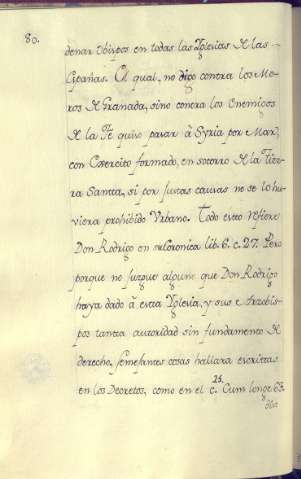 80.
denar Obispos en todas las Iglesias de las
Españas. El qual, no digo contra los Mo-
ros de Granada, sino contra los Enemigos
de la Fe quiso pasar â Syria por Mar,
con Exercito formado, en socorro de la Tier-
ra Santta, si por justas causas no se lo hu-
viera prohibido Urbano. Todo esto refiere
Don Rodrigo en su Coronica lib. 6. c. 27. Pero
porque no juzgue alguno que Don Rodrigo
haya dado â esta Iglesia, y sus Arzobis-
pos tanta autoridad sin fundamento de
derecho, semejantes cosas hallara escrittas
en los Decretos, como en el c. 25. Cum longe 63.